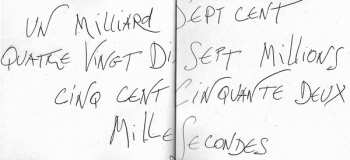 UN MILLIARD SEPT CENT
QUATRE VINGT DI SEPT MILLIONS
CINQ CENT CINQUANTE DEUX
MILLE SECONDES